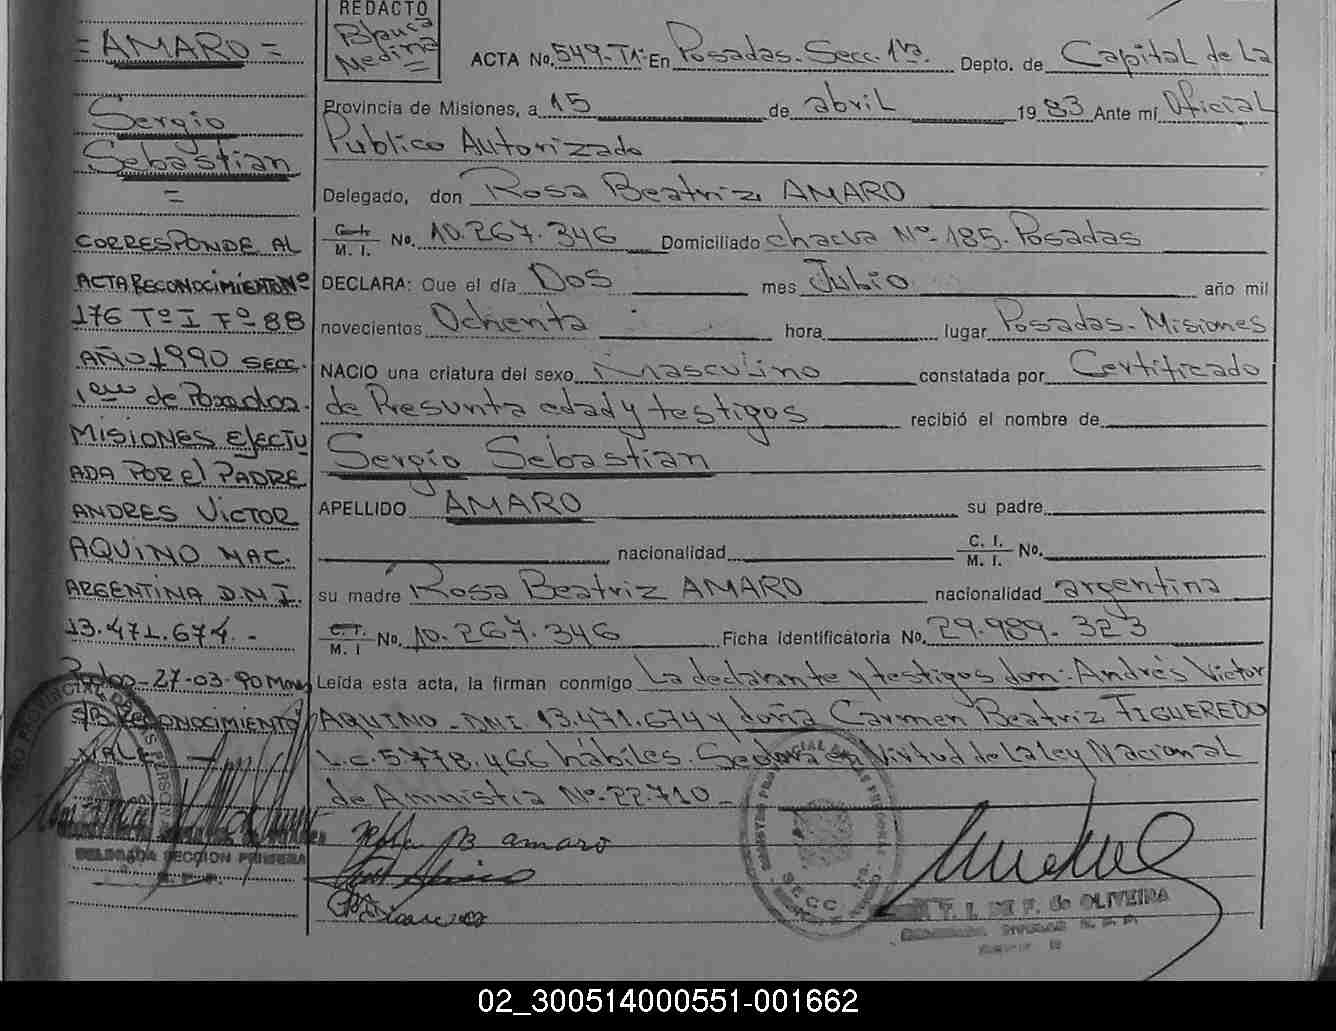 = AMARO =
Sergio
Sebastian
=
CORRESPONDE AL
ACTA RECONOCIMIENTO Nº
176 Tº I Fº 88
AÑO 1990 SECC.
1era de Posadas.
MISIONES EfectU
ADA POR el PADRE
ANDRES VICTOR
AQUINO NAC.
ARGENTINA D.N.I.
13.471.674.-
27-03-90
S/B RECONOCIMIENTO
VALE
DELEGADA SECCION PRIMERA
REDACTO
Blanca
Medina
=
ACTA No. 549-T1- En Posadas. Secc. 1ra. Depto. de Capital de La
Provincia de Misiones, a 15 de abril 1983 Ante mí Oficial
Publico Autorizado
Delegado, don Rosa Beatriz AMARO
C. I. / M. I. No. 10.267.346 Domiciliado chacra Nº- 185. Posadas
DECLARA: Que el día Dos mes Julio año mil
novecientos Ochenta hora lugar Posadas- Misiones
NACIO una criatura del sexo Masculino constatada por Certificado
de Presunta edad y testigos recibió el nombre de
Sergio Sebastian
APELLIDO AMARO su padre
nacionalidad C. I. / M. I. No.
su madre Rosa Beatriz AMARO nacionalidad argentina
C. I. / M. I No. 10.267.346 Ficha identificatoria No. 29.989.323
Leída esta acta, la firman conmigo La declarante y testigos don: Andrés Victor
AQUINO - DNI. 13.471.674 y doña Carmen Beatriz FIGUEREDO
L.C. 5.778.466 hábiles. Se labra en Virtud de la ley Nacional
de Amnistia Nº- 22.710-
B amaro
SECC. 1ra.
T. I. DE F. de OLIVEIRA
02_300514000551-001662